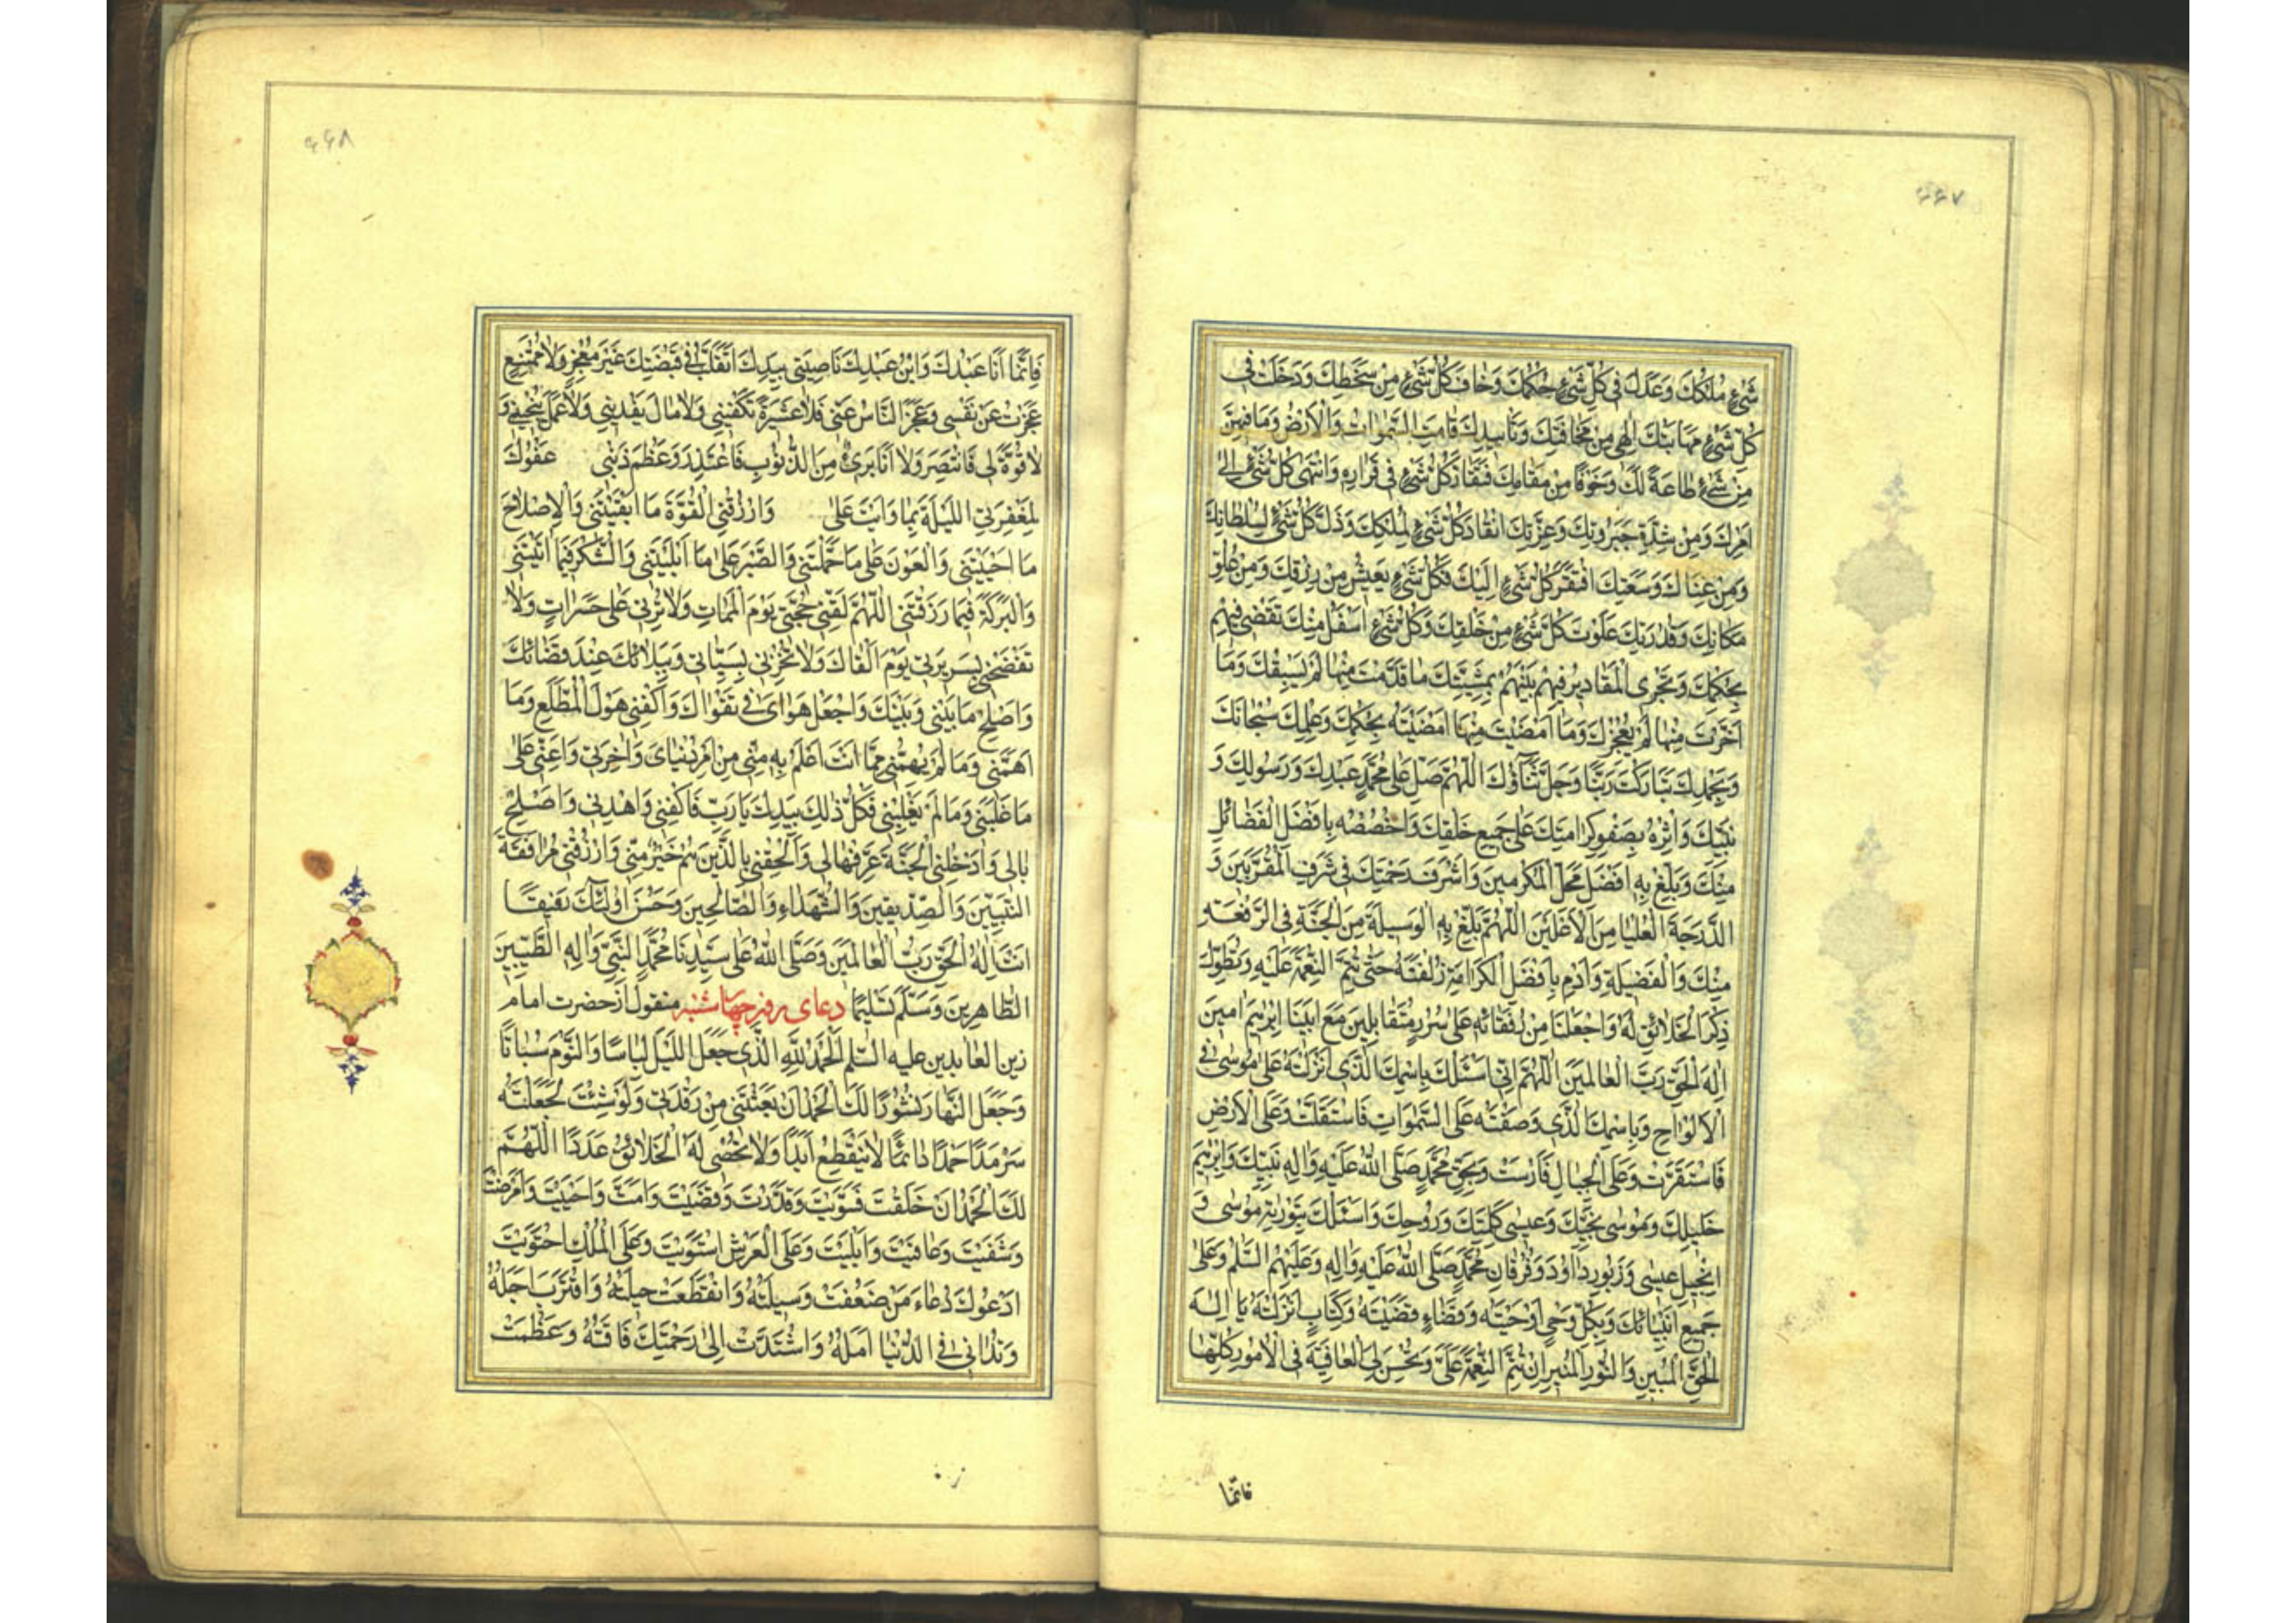 ۶۶۷
شَيْءٍ مُلْكُكَ وَعَدْلُكَ فِي كُلِّ شَيْءٍ حُكْمُكَ وَخَافَ كُلُّ شَيْءٍ مِنْ سَخَطِكَ وَدَخَلَتْ فِي
كُلِّ شَيْءٍ مَهَابَتُكَ اِلٰهِي مِنْ مَخَافَتِكَ وَتَاْييدِكَ قَامَتِ السَّمٰوَاتُ وَالْاَرْضُ وَمَا فِيهِنَّ
مِنْ شَيْءٍ طَاعَةً لَكَ وَخَوْفًا مِنْ مَقَامِكَ فَتَقَارَّ كُلُّ شَيْءٍ فِي قَرَارِهِ وَانْتَهٰى كُلُّ شَيْءٍ اِلٰى
اَمْرِكَ وَمِنْ شِدَّةِ جَبَرُوتِكَ وَعِزَّتِكَ انْقَادَ كُلُّ شَيْءٍ لِمُلْكِكَ وَذَلَّ كُلُّ شَيْءٍ لِسُلْطَانِكَ
وَمِنْ غِنَاكَ وَسَعَتِكَ افْتَقَرَ كُلُّ شَيْءٍ اِلَيْكَ فَكُلُّ شَيْءٍ يَعِيشُ مِنْ رِزْقِكَ وَمِنْ عُلُوِّ
مَكَانِكَ وَقُدْرَتِكَ عَلَوْتَ كُلَّ شَيْءٍ مِنْ خَلْقِكَ وَكُلُّ شَيْءٍ اَسْفَلُ مِنْكَ تَقْضِي فِيهِمْ
بِحُكْمِكَ وَتَجْرِي الْمَقَادِيرُ فِيهِمْ بَيْنَهُمْ بِمَشِيَّتِكَ مَا قَدَّمْتَ مِنْهَا لَمْ يَسْبِقْكَ وَمَا
اَخَّرْتَ مِنْهَا لَمْ يُعْجِزْكَ وَمَا اَمْضَيْتَ مِنْهَا اَمْضَيْتَهُ بِحُكْمِكَ وَعِلْمِكَ سُبْحَانَكَ
وَبِحَمْدِكَ تَبَارَكْتَ رَبَّنَا وَجَلَّ ثَنَاؤُكَ اَللّٰهُمَّ صَلِّ عَلٰى مُحَمَّدٍ عَبْدِكَ وَرَسُولِكَ وَ
نَبِيِّكَ وَاٰثِرْهُ بِصَفْوِ كَرَامَتِكَ عَلٰى جَمِيعِ خَلْقِكَ وَاخْصُصْهُ بِاَفْضَلِ الْفَضَائِلِ
مِنْكَ وَبَلِّغْ بِهِ اَفْضَلَ مَحَلِّ الْمُكَرَّمِينَ وَاَشْرَفَ رَحْمَتِكَ فِي شَرَفِ الْمُقَرَّبِينَ وَ
الدَّرَجَةَ الْعُلْيَا مِنَ الْاَعْلَيْنَ اَللّٰهُمَّ بَلِّغْ بِهِ الْوَسِيلَةَ مِنَ الْجَنَّةِ فِي الرِّفْعَةِ
مِنْكَ وَالْفَضِيلَةِ وَاَدِمْ بِاَفْضَلِ الْكَرَامَةِ زُلْفَتَهُ حَتّٰى تُتِمَّ النِّعْمَةَ عَلَيْهِ وَتُطَوِّلَ
ذِكْرَ الْخَلَائِقِ لَهُ وَاجْعَلْنَا مِنْ رُفَقَائِهِ عَلٰى سُرُرٍ مُتَقَابِلِينَ مَعَ اَبِينَا اِبْرٰهِيمَ اٰمِينَ
اِلٰهَ الْحَقِّ رَبَّ الْعَالَمِينَ اَللّٰهُمَّ اِنِّي اَسْئَلُكَ بِاسْمِكَ الَّذِي اَنْزَلْتَهُ عَلٰى مُوسٰى فِي
الْاَلْوَاحِ وَبِاسْمِكَ الَّذِي وَضَعْتَهُ عَلَى السَّمٰوَاتِ فَاسْتَقَلَّتْ وَعَلَى الْاَرْضِ
فَاسْتَقَرَّتْ وَعَلَى الْجِبَالِ فَاَرْسَتْ وَبِحَقِّ مُحَمَّدٍ صَلَّى اللّٰهُ عَلَيْهِ وَاٰلِهِ نَبِيِّكَ وَاِبْرٰهِيمَ
خَلِيلِكَ وَمُوسٰى نَجِيِّكَ وَعِيسٰى كَلِمَتِكَ وَرُوحِكَ وَاَسْئَلُكَ بِتَوْرٰيةِ مُوسٰى وَ
اِنْجِيلِ عِيسٰى وَزَبُورِ دَاوُدَ وَفُرْقَانِ مُحَمَّدٍ صَلَّى اللّٰهُ عَلَيْهِ وَاٰلِهِ وَعَلَيْهِمُ السَّلٰمُ وَعَلٰى
جَمِيعِ اَنْبِيَائِكَ وَبِكُلِّ وَحْيٍ اَوْحَيْتَهُ وَقَضَاءٍ قَضَيْتَهُ وَكِتَابٍ اَنْزَلْتَهُ يَا اِلٰهَ
الْحَقِّ الْمُبِينِ وَالنُّورِ الْمُنِيرِ اَنْ تُتِمَّ النِّعْمَةَ عَلَيَّ وَتُحْسِنَ لِيَ الْعَافِيَةَ فِي الْاُمُورِ كُلِّهَا
فانما
۶۶۸
فَاِنَّمَا اَنَا عَبْدُكَ وَابْنُ عَبْدِكَ نَاصِيَتِي بِيَدِكَ اَتَقَلَّبُ فِي قَبْضَتِكَ غَيْرَ مُعْجِزٍ وَلَا مُمْتَنِعٍ
عَجَزْتُ عَنْ نَفْسِي وَعَجَزَ النَّاسُ عَنِّي فَلَا عَشِيرَةَ تَكْفِينِي وَلَا مَالَ يَفْدِينِي وَلَا عَمَلَ يُنْجِينِي وَ
لَا قُوَّةَ لِي فَاَنْتَصِرَ وَلَا اَنَا بَرِيءٌ مِنَ الذُّنُوبِ فَاَعْتَذِرَ وَعَظُمَ ذَنْبِي عَفْوُكَ
لِمَغْفِرَتِي اللَّيْلَةَ بِمَا وَاَيْتَ عَلٰى وَارْزُقْنِي الْقُوَّةَ مَا اَبْقَيْتَنِي وَالْاِصْلَاحَ
مَا اَحْيَيْتَنِي وَالْعَوْنَ عَلٰى مَا حَمَّلْتَنِي وَالصَّبْرَ عَلٰى مَا اَبْلَيْتَنِي وَالشُّكْرَ فِيمَا اٰتَيْتَنِي
وَالْبَرَكَةَ فِيمَا رَزَقْتَنِي اَللّٰهُمَّ لَقِّنِي حُجَّتِي يَوْمَ الْمَمَاتِ وَلَا تُرِنِي عَلٰى حَسَرَاتٍ وَلَا
تَفْضَحْنِي بِسَرِيرَتِي يَوْمَ اَلْقَاكَ وَلَا تُخْزِنِي بِسَيِّئَاتِي وَبِبَلَائِكَ عِنْدَ قَضَائِكَ
وَاَصْلِحْ مَا بَيْنِي وَبَيْنَكَ وَاجْعَلْ هَوَايَ فِي تَقْوَاكَ وَاكْفِنِي هَوْلَ الْمُطَّلَعِ وَمَا
اَهَمَّنِي وَمَا لَمْ يُهِمَّنِي مِمَّا اَنْتَ اَعْلَمُ بِهِ مِنِّي مِنْ اَمْرِ دُنْيَايَ وَاٰخِرَتِي وَاَعِنِّي عَلٰى
مَا غَلَبَنِي وَمَا لَمْ يَغْلِبْنِي فَكُلُّ ذٰلِكَ بِيَدِكَ يَا رَبِّ فَاكْفِنِي وَاهْدِنِي وَاَصْلِحْ
بَالِي وَاَدْخِلْنِي الْجَنَّةَ عَرِّفْهَا لِي وَاَلْحِقْنِي بِالَّذِينَ هُمْ خَيْرٌ مِنِّي وَارْزُقْنِي مُرَافَقَةَ
النَّبِيِّينَ وَالصِّدِّيقِينَ وَالشُّهَدَاءِ وَالصَّالِحِينَ وَحَسُنَ اُولٰئِكَ رَفِيقًا
اَنْتَ اِلٰهُ الْحَقِّ رَبُّ الْعَالَمِينَ وَصَلَّى اللّٰهُ عَلٰى سَيِّدِنَا مُحَمَّدٍ النَّبِيِّ وَاٰلِهِ الطَّيِّبِينَ
الطَّاهِرِينَ وَسَلَّمَ تَسْلِيمًا دعای روز چهارشنبه منقول از حضرت امام
زين العابدين عليه السّلم اَلْحَمْدُ لِلّٰهِ الَّذِي جَعَلَ اللَّيْلَ لِبَاسًا وَالنَّوْمَ سُبَاتًا
وَجَعَلَ النَّهَارَ نُشُورًا لَكَ الْحَمْدُ اَنْ بَعَثْتَنِي مِنْ رَقْدَتِي وَلَوْ شِئْتَ لَجَعَلْتَهُ
سَرْمَدًا حَمْدًا دَائِمًا لَا يَنْقَطِعُ اَبَدًا وَلَا يُحْصِي لَهُ الْخَلَائِقُ عَدَدًا اَللّٰهُمَّ
لَكَ الْحَمْدُ اَنْ خَلَقْتَ فَسَوَّيْتَ وَقَدَّرْتَ وَقَضَيْتَ وَاَمَتَّ وَاَحْيَيْتَ وَاَمْرَضْتَ
وَشَفَيْتَ وَعَافَيْتَ وَاَبْلَيْتَ وَعَلَى الْعَرْشِ اسْتَوَيْتَ وَعَلَى الْمُلْكِ احْتَوَيْتَ
اَدْعُوكَ دُعَاءَ مَنْ ضَعُفَتْ وَسِيلَتُهُ وَانْقَطَعَتْ حِيلَتُهُ وَاقْتَرَبَ اَجَلُهُ
وَتَدَانٰى فِي الدُّنْيَا اَمَلُهُ وَاشْتَدَّتْ اِلٰى رَحْمَتِكَ فَاقَتُهُ وَعَظُمَتْ